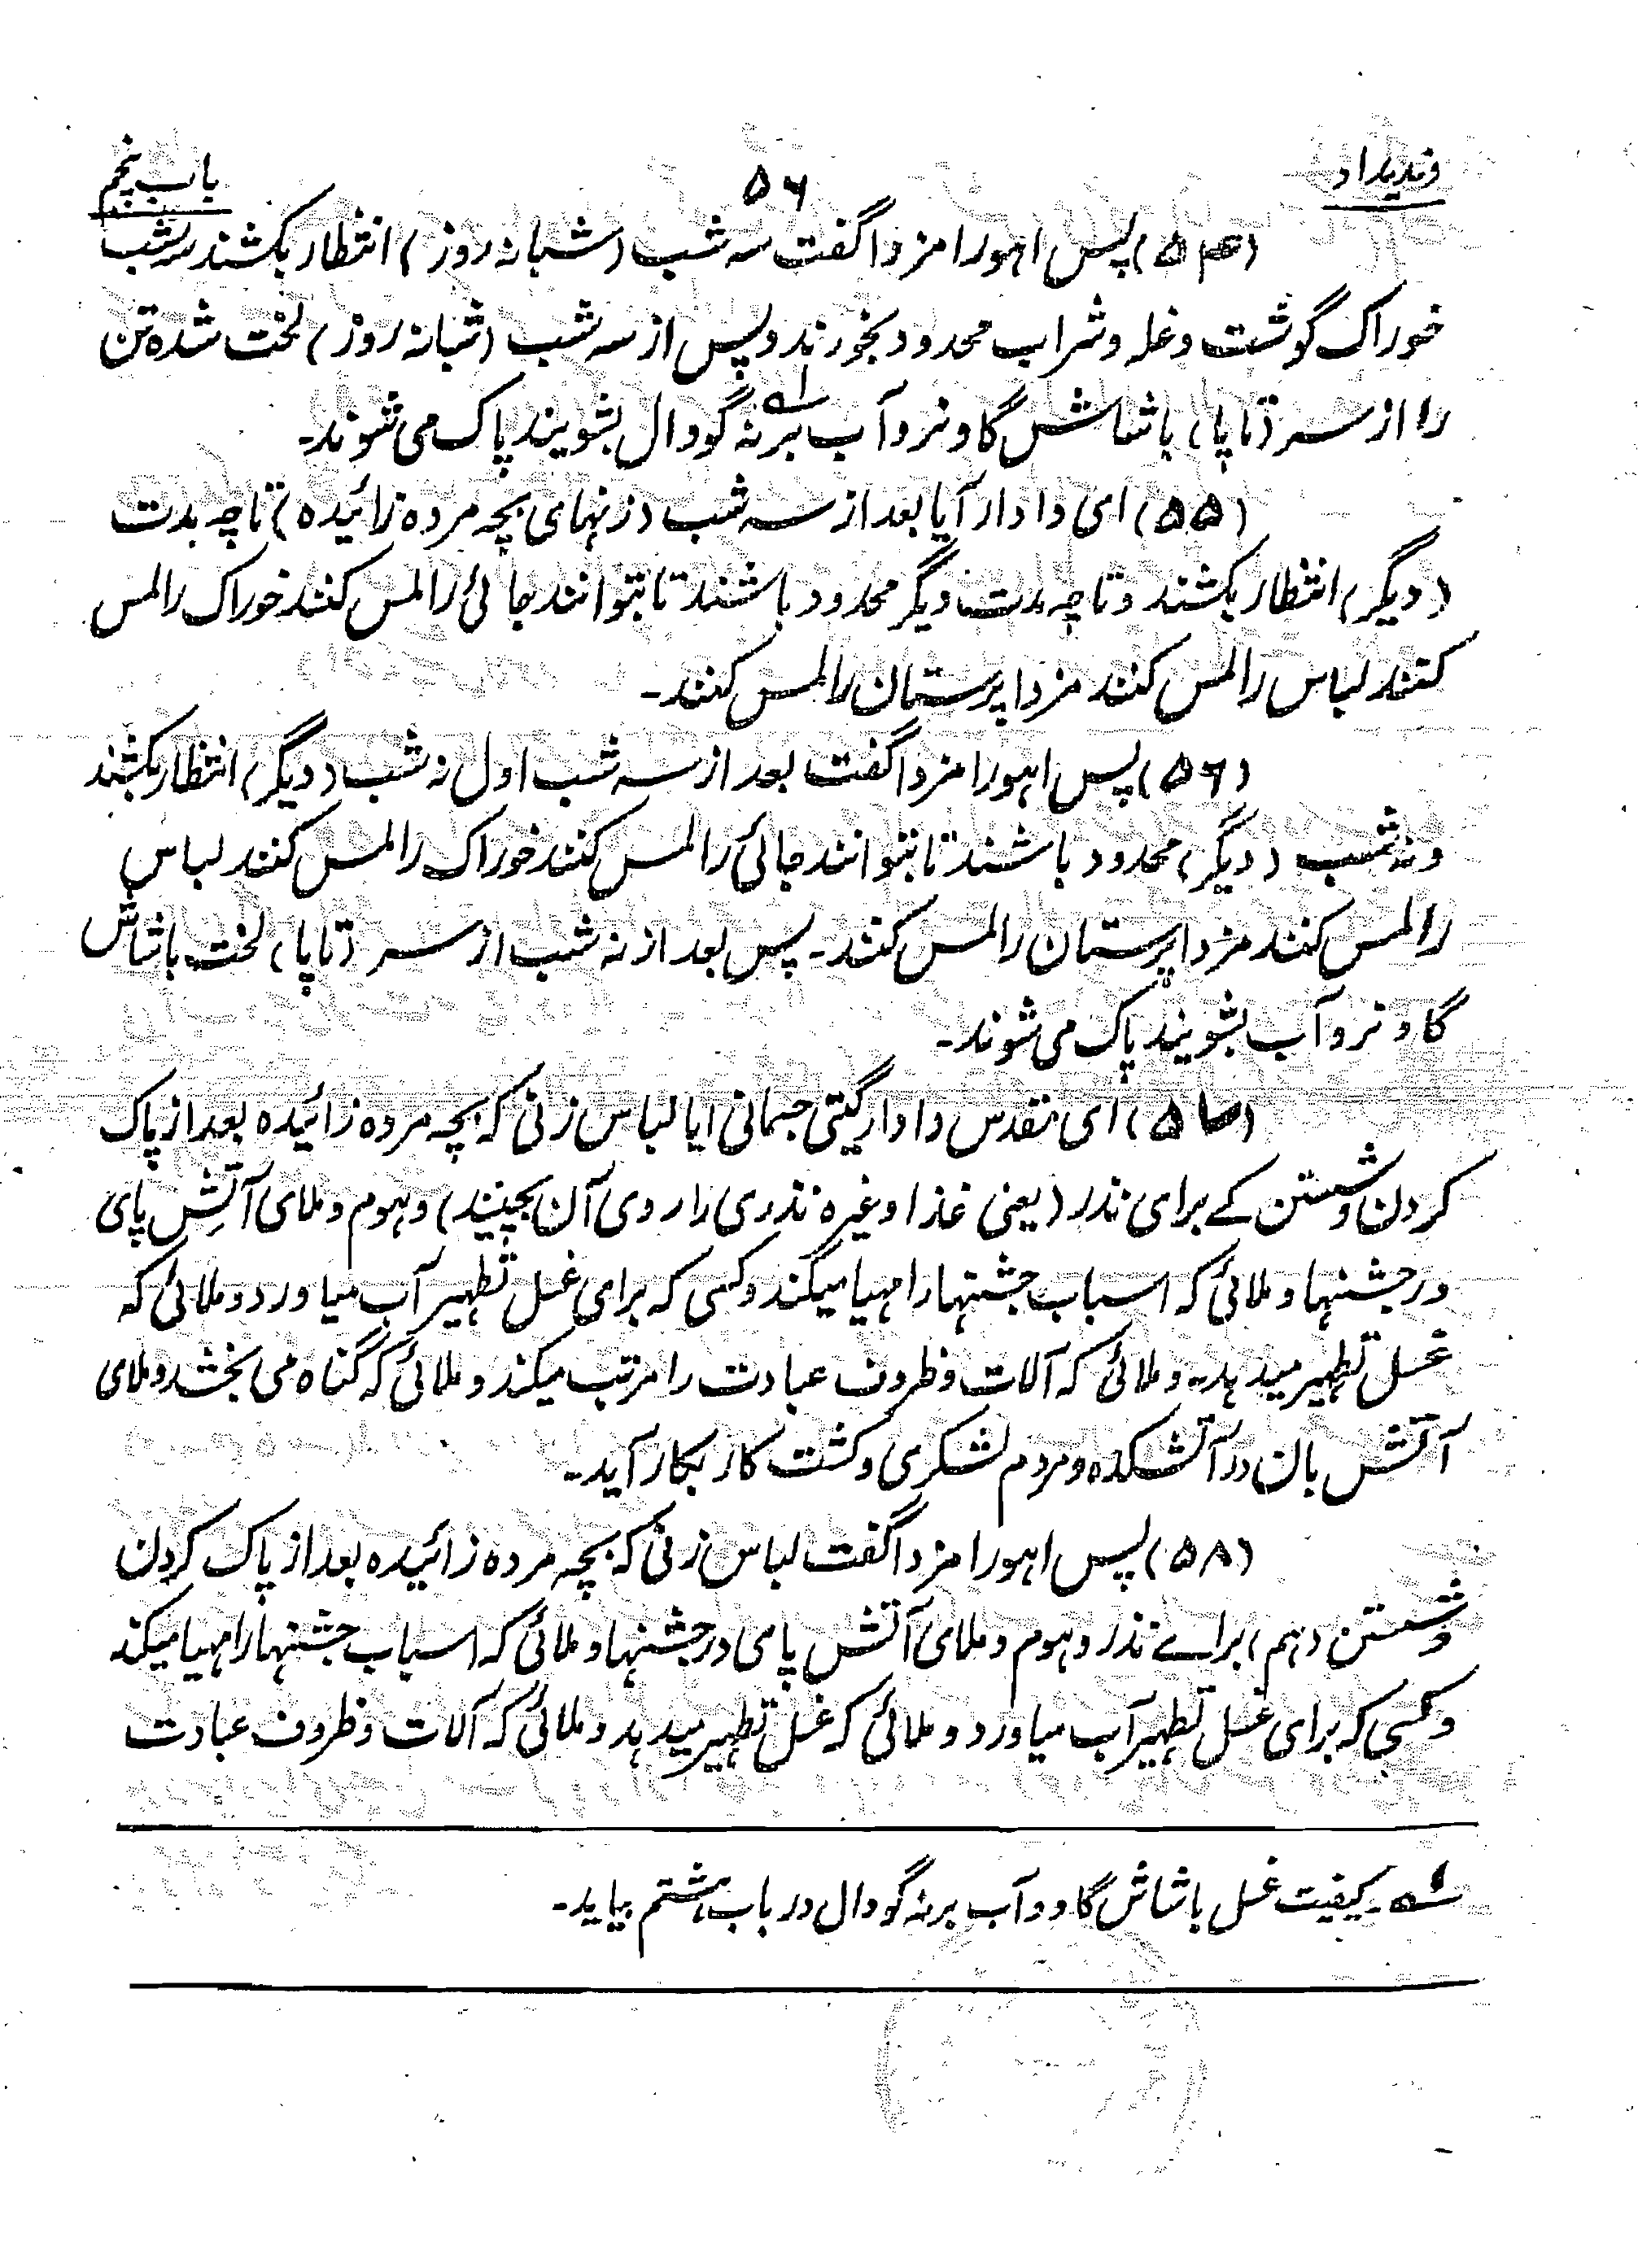 وندیداد
۵۶
باب پنجم
(۵۴) پس اهورا مزدا گفت سه شب (شبانه روز) انتظار بکشند سه شب
خوراک گوشت و غله و شراب محدود بخورند و پس از سه شب (شبانه روز) لخت شده تن
را از سر (تا پا) با شاش گاو نر و آب بر نه گودال بشویند پاک می شوند۔
(۵۵) ای دادار آیا بعد از سه شب (زنهای بچه مرده زائیده) تا چه مدت
(دیگر) انتظار بکشند و تا چه مدت دیگر محدود باشند تا بتوانند جائی را لمس کنند خوراک را لمس
کنند لباس را لمس کنند مزدا پرستان را لمس کنند۔
(۵۶) پس اهورا مزدا گفت بعد از سه شب اول نه شب (دیگر) انتظار بکشند
و نه شب (دیگر) محدود باشند تا بتوانند جائی را لمس کنند خوراک را لمس کنند لباس
را لمس کنند مزدا پرستان را لمس کنند۔ پس بعد از نه شب از سر (تا پا) لخت با شاش
گاو نر و آب بشویند پاک می شوند۔
(۵۷) ای مقدس دادار گیتی جسمانی ایا لباس زنی که بچه مرده زائیده بعد از پاک
کردن و شستن کے برای نذر (یعنی غذا وغیره نذری را روی آن بچینند) و هوم و ملای آتش پای
در جشنها و ملائی که اسباب جشنها را مهیا میکند و کسی که برای غسل تطهیر آب میاورد و ملائی که
غسل تطهیر میدهد۔ و ملائی که آلات و ظروف عبادت را مرتب میکند و ملائی که گناه می بخشد و ملای
آتش بان در آتشکده و مردم لشکری و کشت کار بکار آید۔
(۵۸) پس اهورا مزدا گفت لباس زنی که بچه مرده زائیده بعد از پاک کردن
و شستن (هم) براے نذر و هوم و ملای آتش پای در جشنها و ملائی که اسباب جشنها را مهیا میکند
و کسی که برای غسل تطهیر آب میاورد و ملائی که غسل تطهیر میدهد و ملائی که آلات و ظروف عبادت
۱ه۔ کیفیت غسل با شاش گاو و آب بر نه گودال در باب هشتم بیاید۔